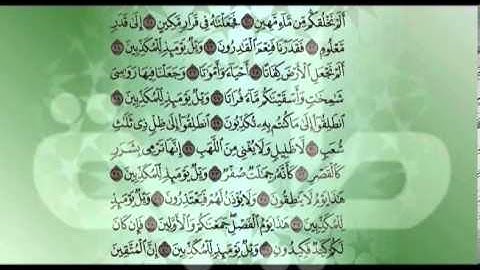 أَلَمْ نَخْلُقكُّم مِّن مَّآءٍ مَّهِينٍ فَجَعَلْنَٰهُ فِى قَرَارٍ مَّكِينٍ إِلَىٰ قَدَرٍ
مَّعْلُومٍ فَقَدَرْنَا فَنِعْمَ ٱلْقَٰدِرُونَ وَيْلٌ يَوْمَئِذٍ لِّلْمُكَذِّبِينَ
أَلَمْ نَجْعَلِ ٱلْأَرْضَ كِفَاتًا أَحْيَآءً وَأَمْوَٰتًا وَجَعَلْنَا فِيهَا رَوَٰسِىَ
شَٰمِخَٰتٍ وَأَسْقَيْنَٰكُم مَّآءً فُرَاتًا وَيْلٌ يَوْمَئِذٍ لِّلْمُكَذِّبِينَ
ٱنطَلِقُوٓا۟ إِلَىٰ مَا كُنتُم بِهِۦ تُكَذِّبُونَ ٱنطَلِقُوٓا۟ إِلَىٰ ظِلٍّ ذِى ثَلَٰثِ
شُعَبٍ لَّا ظَلِيلٍ وَلَا يُغْنِى مِنَ ٱللَّهَبِ إِنَّهَا تَرْمِى بِشَرَرٍ
كَٱلْقَصْرِ كَأَنَّهُۥ جِمَٰلَتٌ صُفْرٌ وَيْلٌ يَوْمَئِذٍ لِّلْمُكَذِّبِينَ
هَٰذَا يَوْمُ لَا يَنطِقُونَ وَلَا يُؤْذَنُ لَهُمْ فَيَعْتَذِرُونَ وَيْلٌ يَوْمَئِذٍ
لِّلْمُكَذِّبِينَ هَٰذَا يَوْمُ ٱلْفَصْلِ جَمَعْنَٰكُمْ وَٱلْأَوَّلِينَ فَإِن كَانَ
لَكُمْ كَيْدٌ فَكِيدُونِ وَيْلٌ يَوْمَئِذٍ لِّلْمُكَذِّبِينَ إِنَّ ٱلْمُتَّقِينَ